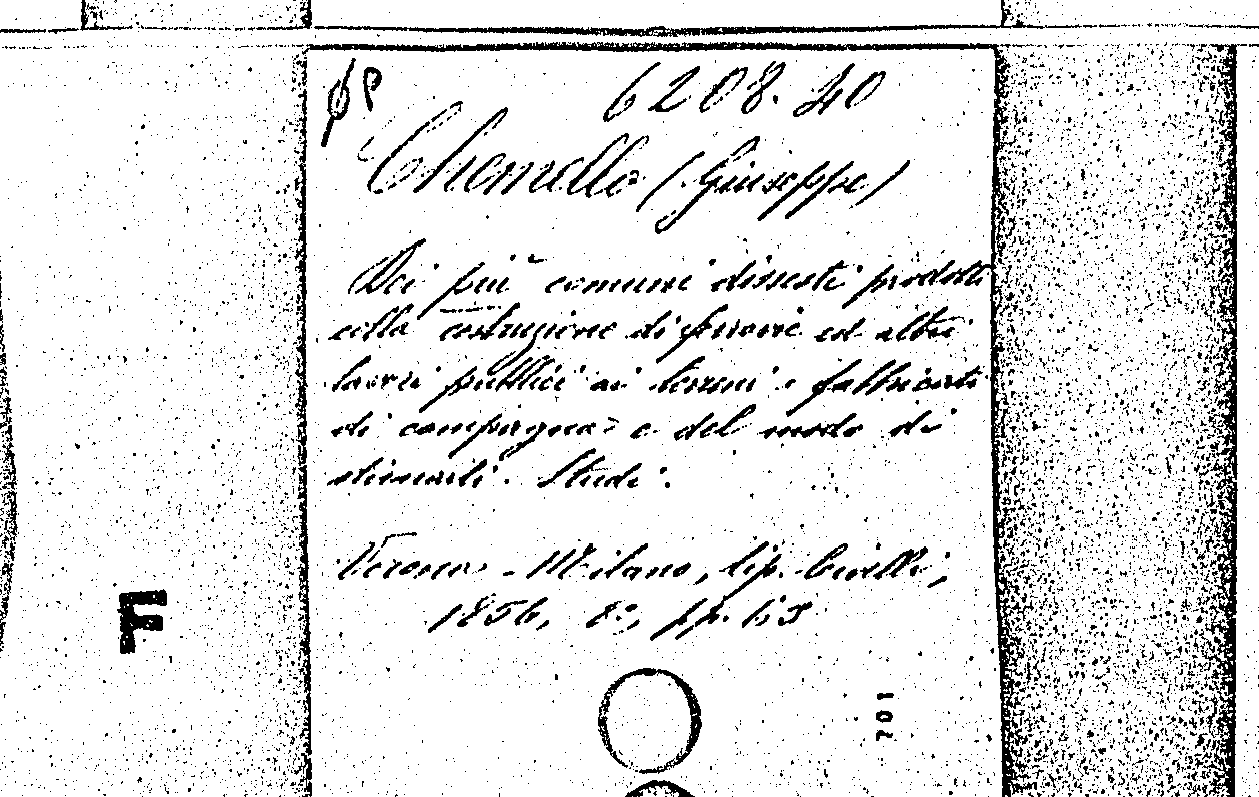 6208. 40
Chemello (Giuseppe)
Dei più comuni dissesti prodotti
colla costruzione di ferrovie ed altri
lavori pubblici ai terreni e fabbricati
di campagna e del modo di
stimarli. Studi.
Verona - Milano, tip. Civelli,
1856, 8°, pp. 153
F
701